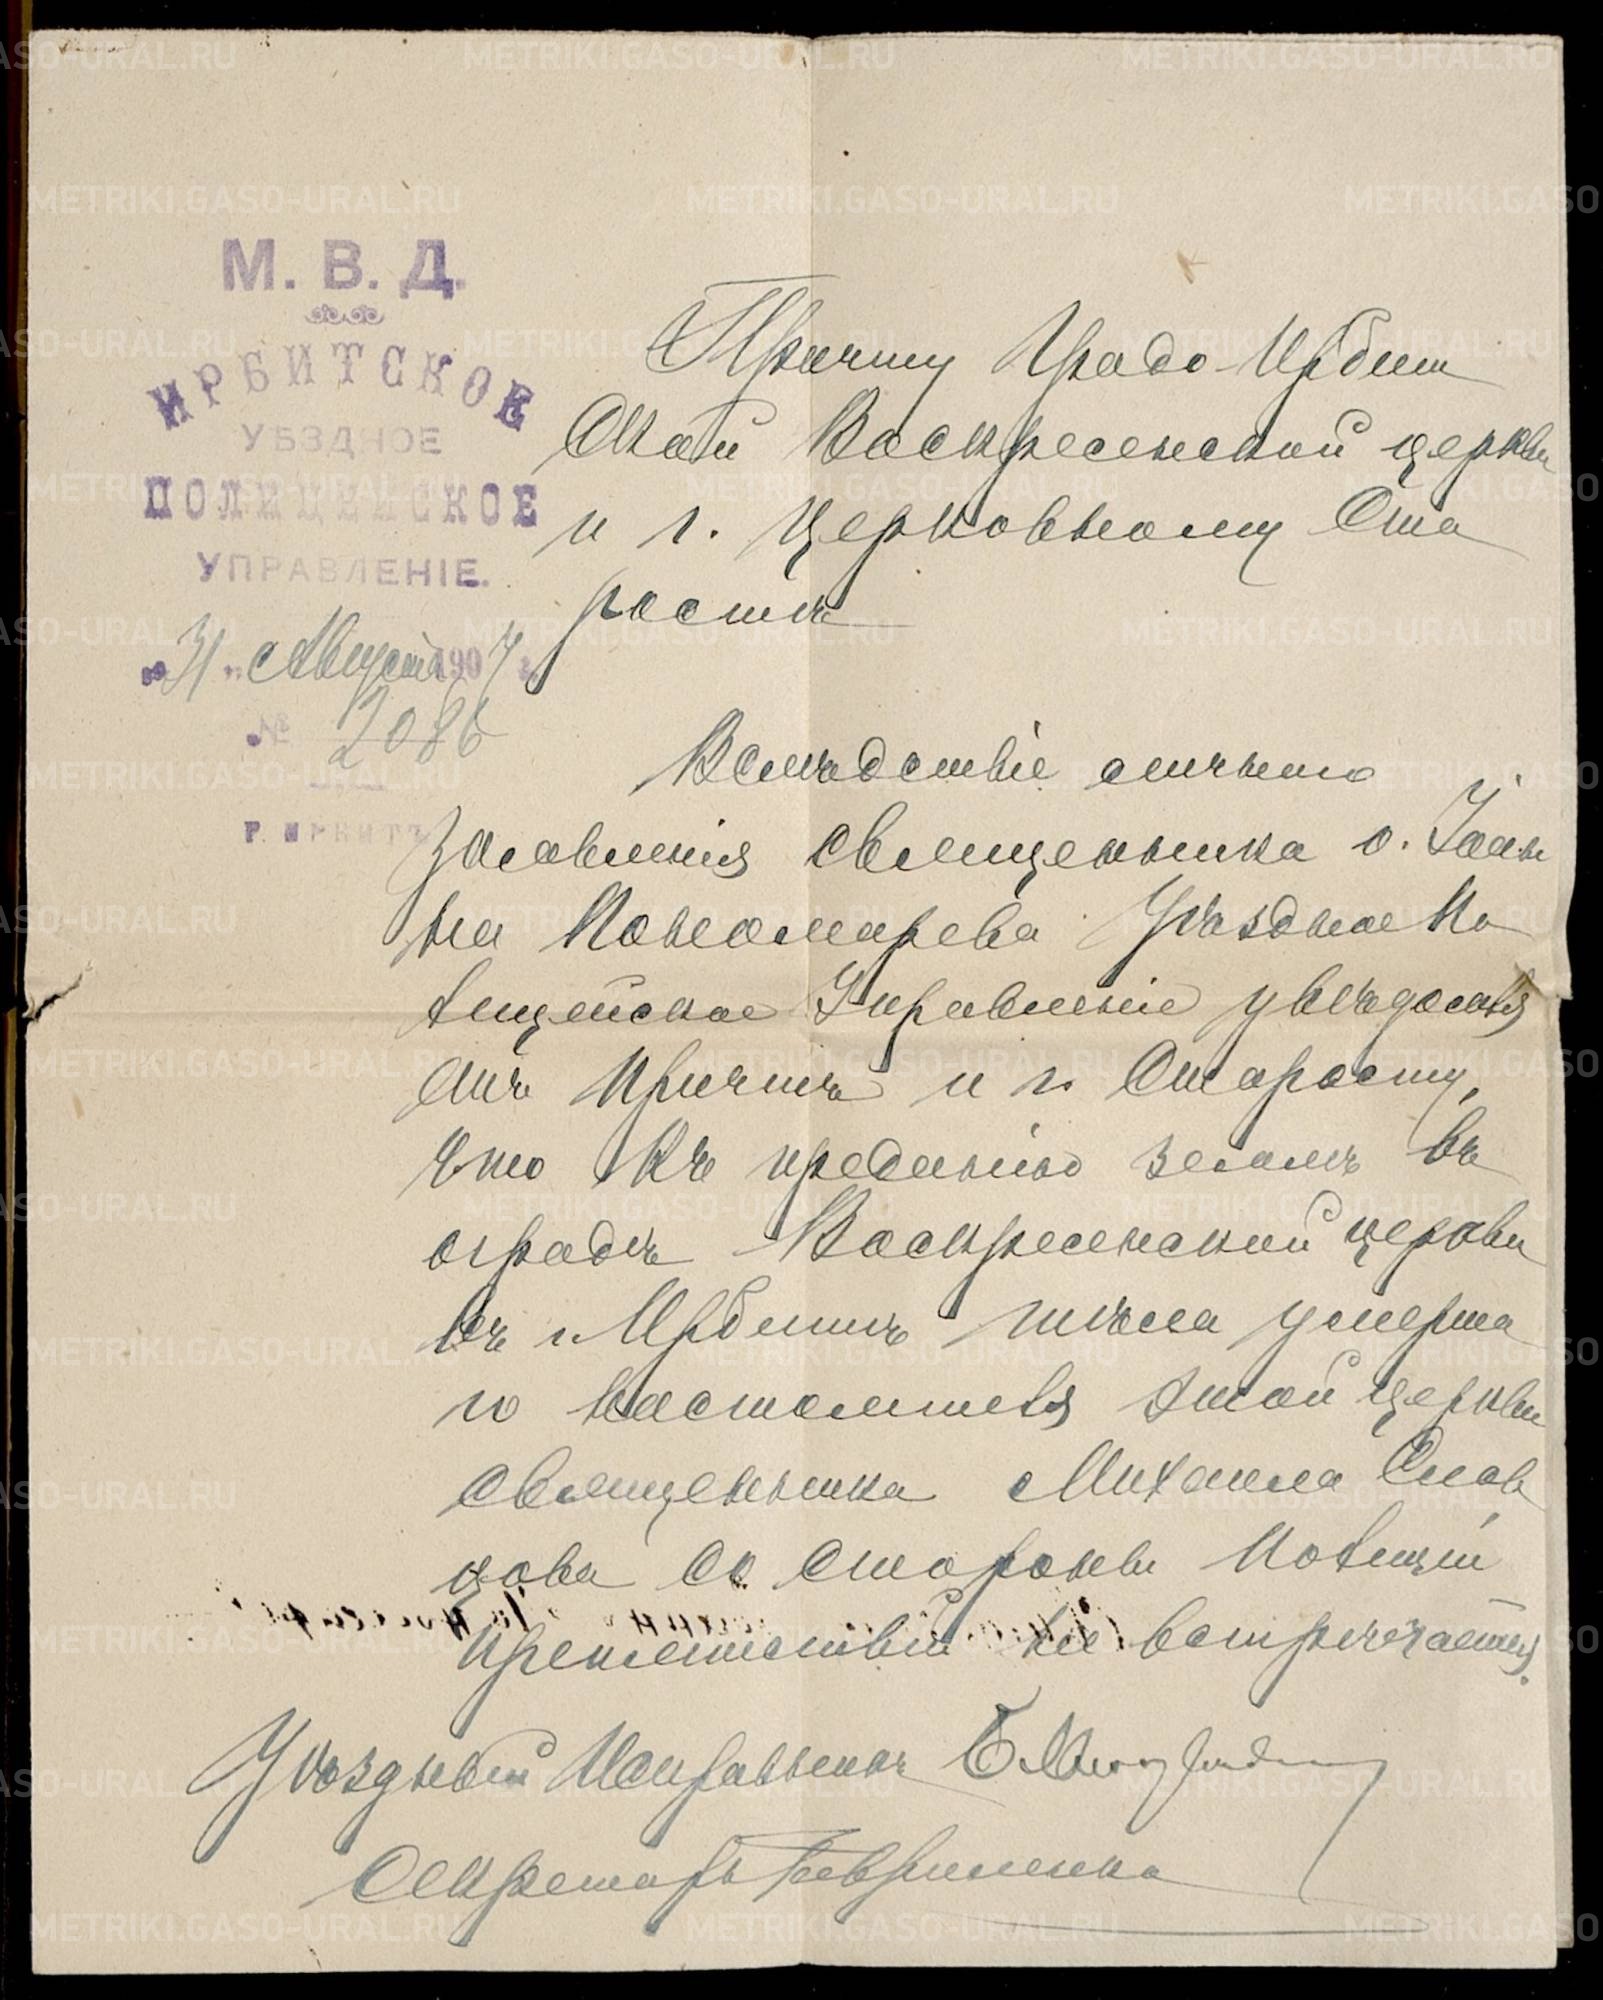 М. В. Д.
ИРБИТСКОЕ
УѢЗДНОЕ
ПОЛИЦЕЙСКОЕ
УПРАВЛЕНІЕ.
„31„ Августа 1907 г.
№ 2086
Г. ИРБИТЪ
Причту Градо-Ирбит
ской Воскресенской церкви
и г. Церковному Ста
ростѣ
Вслѣдствіе личного
заявленія священника о. Іоан
на Пономарева Уѣздное По
лицейское Управленіе увѣдомля
етъ Причтъ и г. Старосту,
что къ преданію землѣ въ
оградѣ Воскресенской церкви
въ г. Ирбитѣ тѣла умерша
го настоятеля этой церкви
священника Михаила Слов
цова со стороны Полиціи
препятствій не встрѣчается.
Уѣздный Исправникъ
Секретарь
METRIKI.GASO-URAL.RU